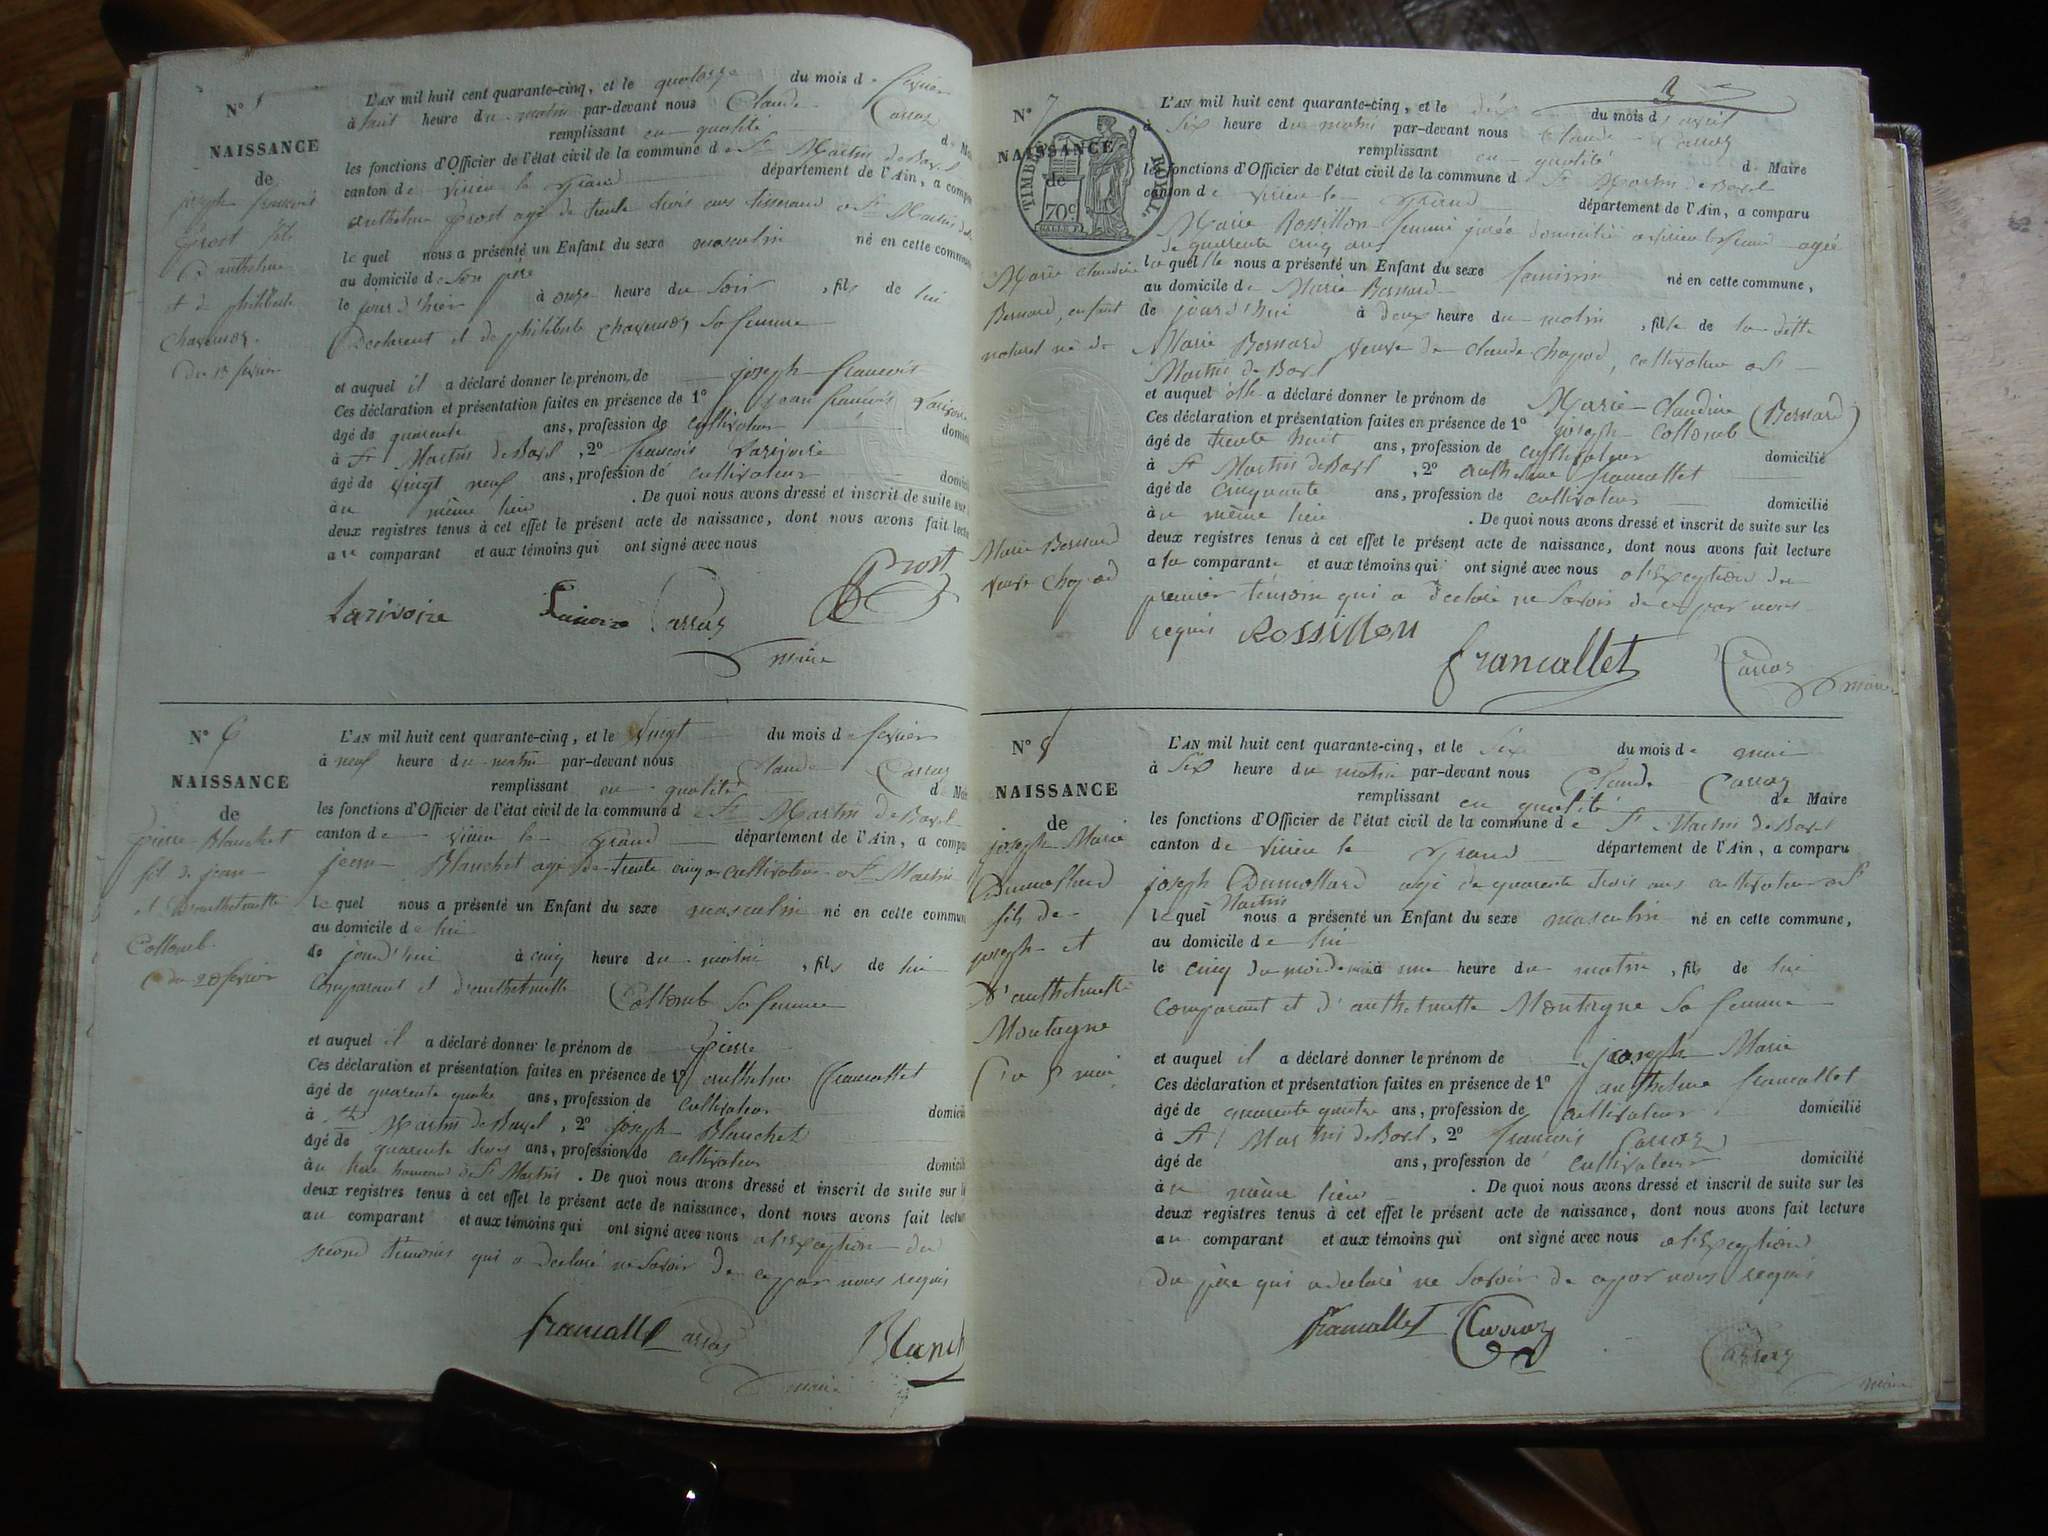 N° 5
NAISSANCE
de
joseph francois
Prost fils
d'anthelme
et de philiberte
chavemoz.
du 13 fevrier
L'AN mil huit cent quarante-cinq, et le quatorze du mois de fevrier
à huit heure du matin par-devant nous Claude Carraz
remplissant en qualité de Mai
les fonctions d'Officier de l'état civil de la commune de St Martin de Bavel
canton de virieu le grand département de l'Ain, a compa
anthelme Prost agé de trente trois ans tisserand a St Martin de
lequel nous a présenté un Enfant du sexe masculin né en cette commun
au domicile de son père
le jour d'hier à onze heure du soir, fils de lui
Declarent et de philiberte chavemoz sa femme
et auquel il a déclaré donner le prénom de joseph francois
Ces déclaration et présentation faites en présence de 1° jean francois Larivoire
âgé de quarente ans, profession de cultivateur domici
à St Martin de Bavel, 2° francois Larivoire
âgé de vingt neuf ans, profession de cultivateur domici
au même lieu. De quoi nous avons dressé et inscrit de suite sur
deux registres tenus à cet effet le présent acte de naissance, dont nous avons fait lectu
au comparant et aux témoins qui ont signé avec nous
Prost
Larivoire Carraz
maire
N° 6
NAISSANCE
de
pierre Blanchet
fils de jean
et
Collomb.
du 20 fevrier
L'AN mil huit cent quarante-cinq, et le vingt du mois de fevrier
à neuf heure du matin par-devant nous Claude Carraz
remplissant en qualité de Mair
les fonctions d'Officier de l'état civil de la commune de St Martin de Bavel
canton de virieu le grand département de l'Ain, a compa
jean Blanchet agé de trente cinq cultivateur a St Martin
lequel nous a présenté un Enfant du sexe masculin né en cette commun
au domicile de lui
le jourd'hui à cinq heure du matin, fils de lui
Comparant et d'anthelmette Collomb sa femme
et auquel il a déclaré donner le prénom de pierre
Ces déclaration et présentation faites en présence de 1° anthelme francallet
âgé de quarente quatre ans, profession de cultivateur domicili
à St Martin de Bavel, 2° joseph Blanchet
âgé de quarente trois ans, profession de cultivateur domicili
au St Martin. De quoi nous avons dressé et inscrit de suite sur l
deux registres tenus à cet effet le présent acte de naissance, dont nous avons fait lectur
au comparant et aux témoins qui ont signé avec nous a l'exception du
second témoins qui a declaré ne savoir de ce par nous requis
francallet Carraz Blanch
maire
3
N° 7
NAISSANCE
de
TIMBRE ROYAL
70c
Marie claudine
Bernard, enfant
naturel né de
Marie Bernard
veuve chapod
L'AN mil huit cent quarante-cinq, et le dix du mois d'avril
à six heure du matin par-devant nous Claude Carraz
remplissant en qualité de Maire
les fonctions d'Officier de l'état civil de la commune de St Martin de Bavel
canton de virieu le grand département de l'Ain, a comparu
Marie Rossillon femme jurée domicilié a virieu le grand agée
de quarente cinq ans
laquelle nous a présenté un Enfant du sexe feminin né en cette commune,
au domicile de Marie Bernard
le jourd'hui à deux heure du matin, fille de la ditte
Marie Bernard veuve de claude chapod, cultivatrice a St
Martin de Bavel
et auquel elle a déclaré donner le prénom de Marie claudine (Bernard)
Ces déclaration et présentation faites en présence de 1° joseph Collomb
âgé de trente huit ans, profession de cultivateur domicilié
à St Martin de Bavel, 2° anthelme francallet
âgé de cinquante ans, profession de cultivateur domicilié
au même lieu. De quoi nous avons dressé et inscrit de suite sur les
deux registres tenus à cet effet le présent acte de naissance, dont nous avons fait lecture
a la comparante et aux témoins qui ont signé avec nous a l'exception du
premier témoin qui a declaré ne savoir de ce par nous
requis Rossillon
francallet Carraz
maire
N° 8
NAISSANCE
de
joseph Marie
Dumollard
fils de
joseph et
d'anthelmette
Montagne
du 5 mai
L'AN mil huit cent quarante-cinq, et le six du mois de mai
à six heure du matin par-devant nous Claude Carraz
remplissant en qualité de Maire
les fonctions d'Officier de l'état civil de la commune de St Martin de Bavel
canton de virieu le grand département de l'Ain, a comparu
joseph Dumollard agé de quarente trois ans cultivateur a St
Martin
lequel nous a présenté un Enfant du sexe masculin né en cette commune,
au domicile de lui
le cinq du mois de mai à une heure du matin, fils de lui
comparant et d'anthelmette Montagne sa femme
et auquel il a déclaré donner le prénom de joseph Marie
Ces déclaration et présentation faites en présence de 1° anthelme francallet
âgé de quarente quatre ans, profession de cultivateur domicilié
à St Martin de Bavel, 2° francois Carraz
âgé de ans, profession de cultivateur domicilié
au même lieu. De quoi nous avons dressé et inscrit de suite sur les
deux registres tenus à cet effet le présent acte de naissance, dont nous avons fait lecture
au comparant et aux témoins qui ont signé avec nous a l'exception
du père qui a declaré ne savoir de ce par nous requis
francallet Carraz Carraz
maire